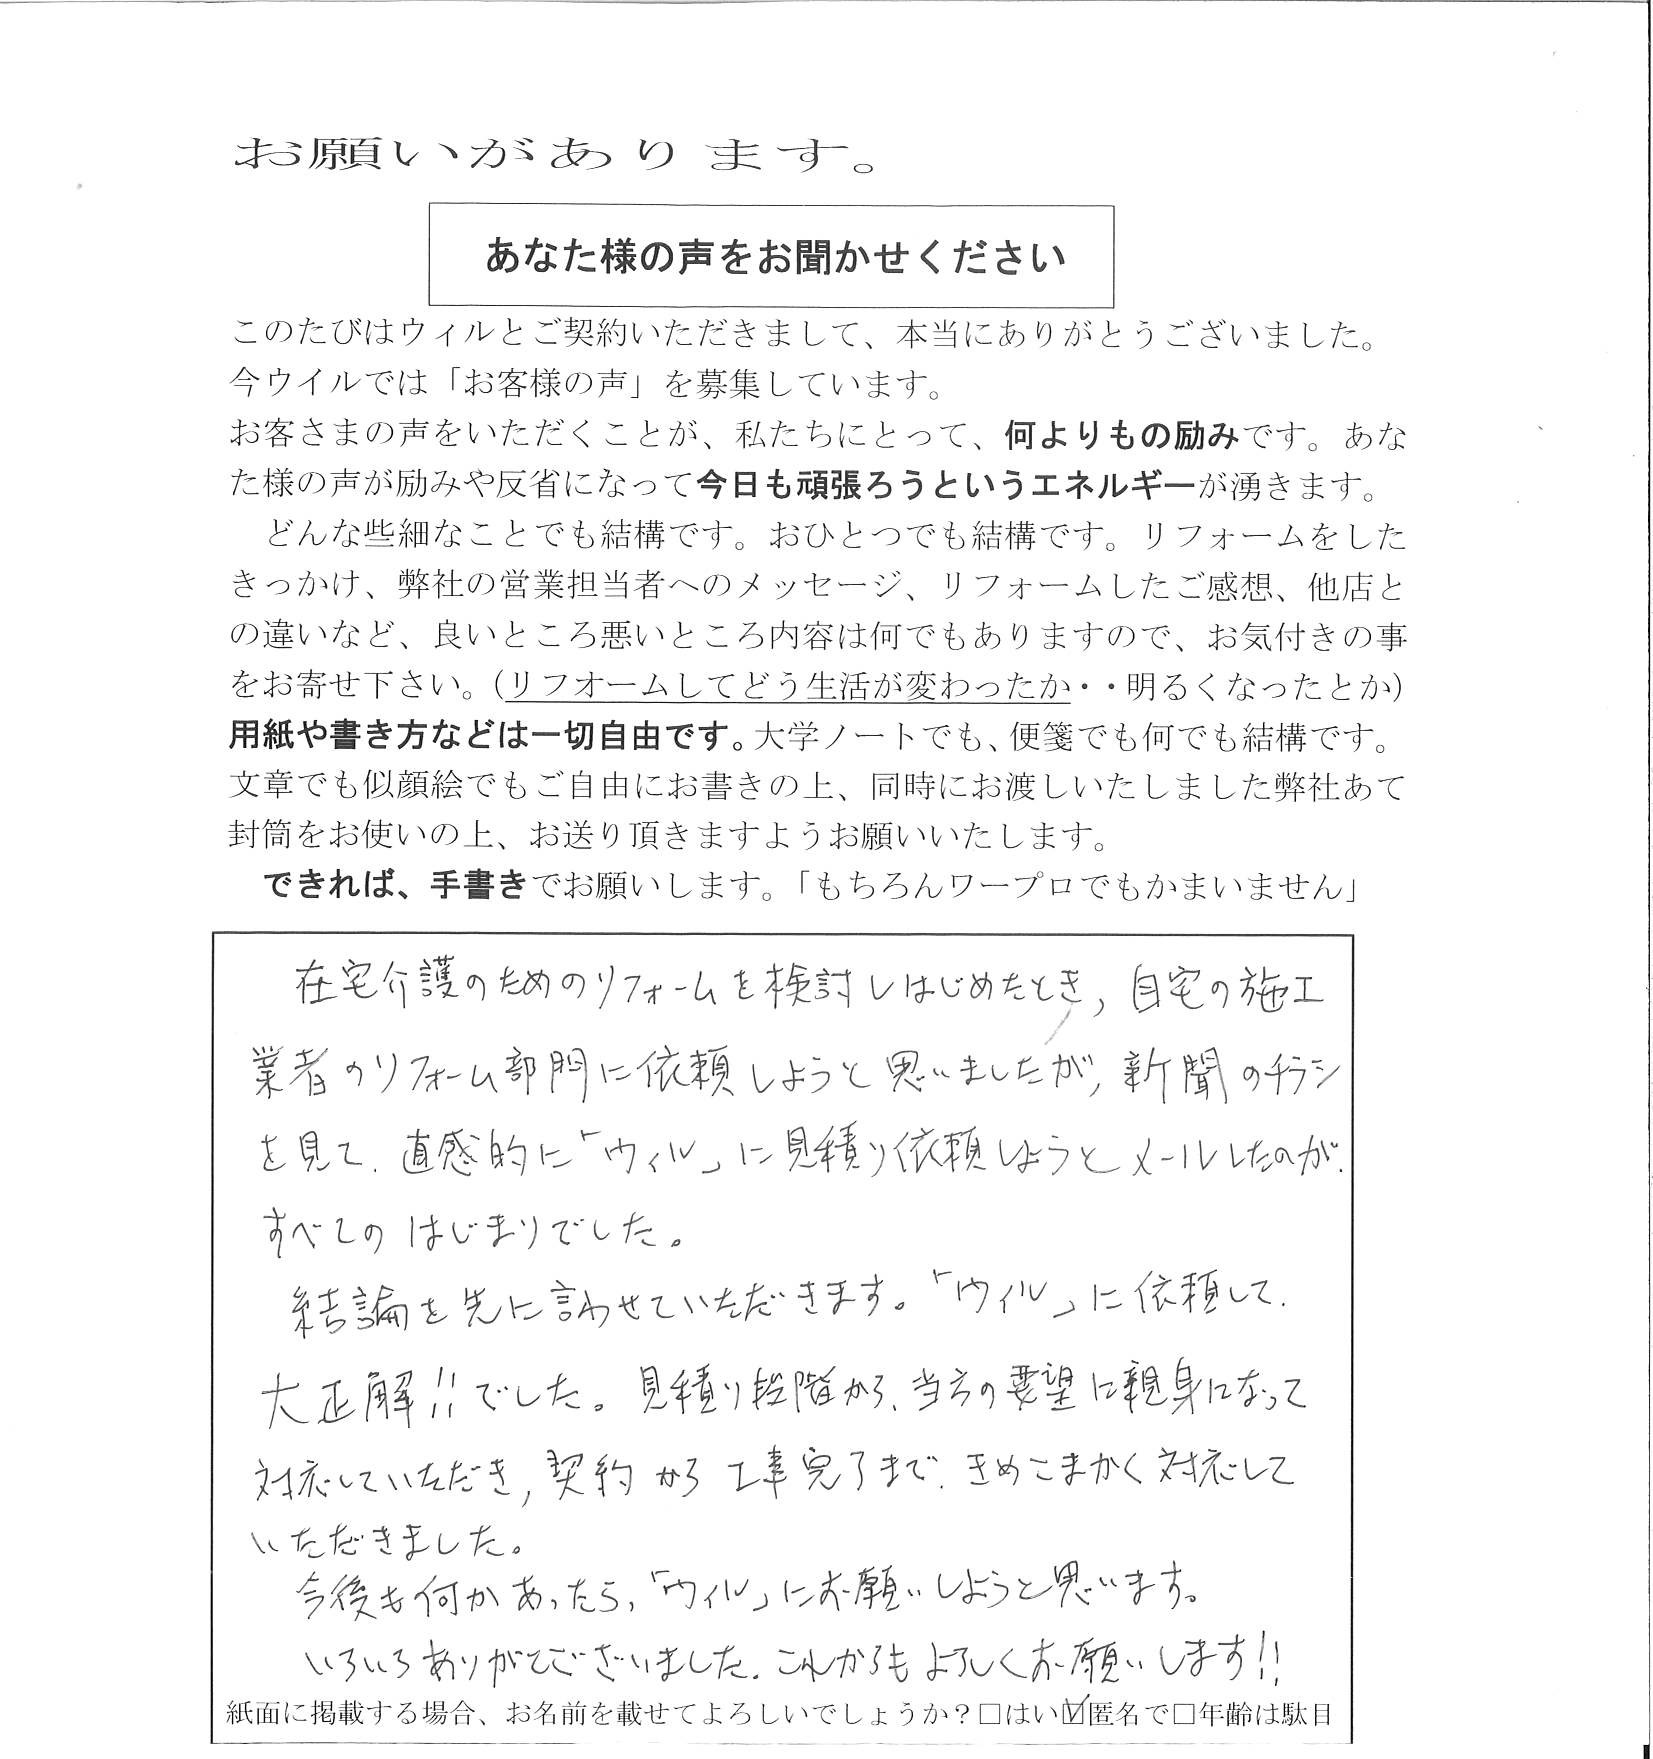 お願いがあります。
あなた様の声をお聞かせください
このたびはウィルとご契約いただきまして、本当にありがとうございました。
今ウイルでは「お客様の声」を募集しています。
お客さまの声をいただくことが、私たちにとって、何よりもの励みです。あな
た様の声が励みや反省になって今日も頑張ろうというエネルギーが湧きます。
どんな些細なことでも結構です。おひとつでも結構です。リフォームをした
きっかけ、弊社の営業担当者へのメッセージ、リフォームしたご感想、他店と
の違いなど、良いところ悪いところ内容は何でもありますので、お気付きの事
をお寄せ下さい。(リフォームしてどう生活が変わったか・・明るくなったとか)
用紙や書き方などは一切自由です。大学ノートでも、便箋でも何でも結構です。
文章でも似顔絵でもご自由にお書きの上、同時にお渡しいたしました弊社あて
封筒をお使いの上、お送り頂きますようお願いいたします。
できれば、手書きでお願いします。「もちろんワープロでもかまいません」
在宅介護のためのリフォームを検討しはじめたとき,自宅の施工
業者のリフォーム部門に依頼しようと思いましたが,新聞のチラシ
を見て、直感的に「ウィル」に見積り依頼しようとメールしたのが、
すべてのはじまりでした。
結論を先に言わせていただきます。「ウィル」に依頼して、
大正解!!でした。見積り段階から、当方の要望に親身になって
対応していただき,契約から工事完了まで、きめこまかく対応して
いただきました。
今後も何かあったら,「ウィル」にお願いしようと思います。
いろいろありがとございました。これからもよろしくお願いします!!
紙面に掲載する場合、お名前を載せてよろしいでしょうか?□はい☑匿名で□年齢は駄目